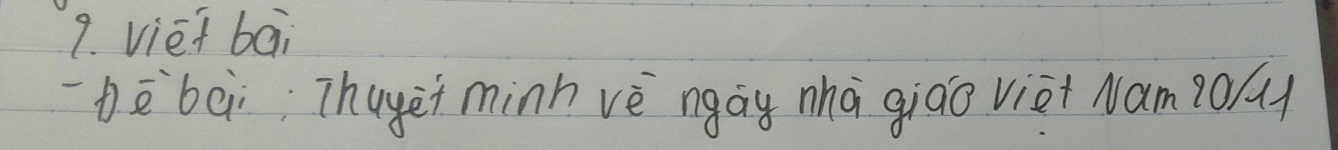 2. Viết bài
- Đề bài : Thuyết minh về ngày nhà giáo Việt Nam 20/11